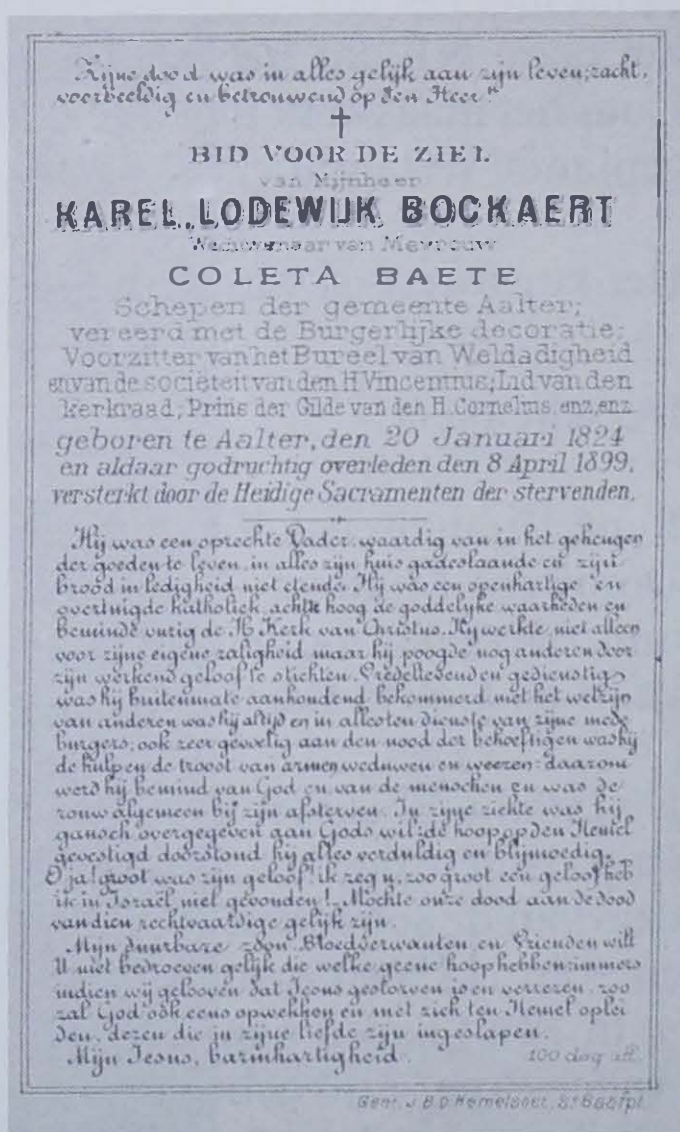 Zijne dood was in alles gelijk aan zijn leven; zacht,
voorbeeldig en betrouwend op den Heer.
BID VOOR DE ZIEL
van Mijnheer
KAREL LODEWIJK BOCKAERT
Weduwenaar van Mevrouw
COLETA BAETE
Schepen der gemeente Aalter;
vereerd met de Burgerlijke decoratie;
Voorzitter van het Bureel van Weldadigheid
en van de sociëteit van den H Vincentius; Lid van den
kerkraad; Prins der Gilde van den H. Cornelius, enz, enz.
geboren te Aalter, den 20 Januari 1824
en aldaar godruchtig overleden den 8 April 1899,
versterkt door de Heilige Sacramenten der stervenden.
Hij was een oprechte Vader, waardig van in het geheugen
der goeden te leven, in alles zijn huis gadeslaande en zijn
brood in ledigheid niet etende. Hij was een openhartige en
overtuigde katholiek, achtte hoog de goddelijke waarheden en
beminde vurig de H. Kerk van Christus. Hij werkte niet alleen
voor zijne eigene zaligheid maar hij poogde nog anderen door
zijn werkend geloof te stichten. Vredelievend en gedienstig
was hij buitenmate aanhoudend bekommerd met het welzijn
van anderen was hij altijd en in alles ten dienste van zijne mede
burgers; ook zeer gevoelig aan den nood der behoeftigen was hij
de hulp en de troost van armen weduwen en weezen: daarom
werd hij bemind van God en van de menschen en was de
rouw algemeen bij zijn afsterven. In zijne ziekte was hij
gansch overgegeven aan Gods wil: de hoop op den Hemel
gevestigd doorstond hij alles verduldig en blijmoedig.
O ja! groot was zijn geloof! ik zeg u, zoo groot een geloof heb
ik in Israël niet gevonden! Mochte onze dood aan de dood
van dien rechtvaardige gelijk zijn.
Mijn duurbare zoon, Bloedverwanten en Vrienden wilt
U niet bedroeven gelijk die welke geene hoop hebben: immers
indien wij gelooven dat Jesus gestorven is en verrezen, zoo
zal God ook eens opwekken en met zich ten Hemel oplei
den, dezen die in zijne liefde zijn ingeslapen.
Mijn Jesus, barmhartigheid. 100 dag. afl.
J. B. D'Hemelsoet, St Baafpl.